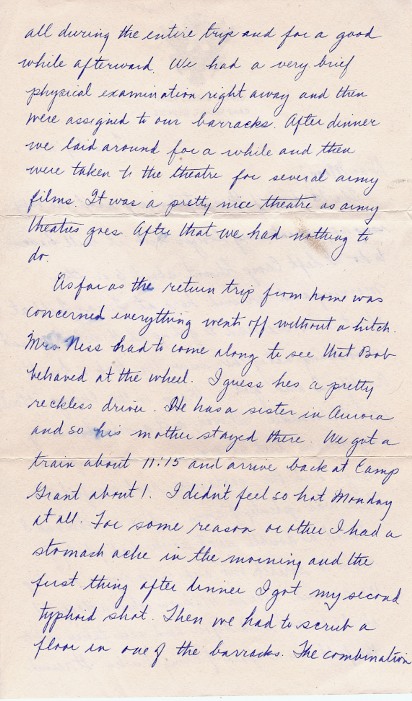 all during the entire trip and for a good
while afterward. We had a very brief
physical examination right away and then
were assigned to our barracks. After dinner
we laid around for a while and then
were taken to the theatre for several army
films. It was a pretty nice theatre as army
theatres goes. After that we had nothing to
do.
As far as the return trip from home was
concerned everything went off without a hitch.
Mrs. Ness had to come along to see that Bob
behaved at the wheel. I guess hes a pretty
reckless driver. He has a sister in Aurora
and so his mother stayed there. We got a
train about 11:15 and arrive back at Camp
Grant about 1. I didn't feel so hot Monday
at all. For some reason or other I had a
stomach ache in the morning and the
first thing after dinner I got my second
typhoid shot. Then we had to scrub a
floor in one of the barracks. The combination